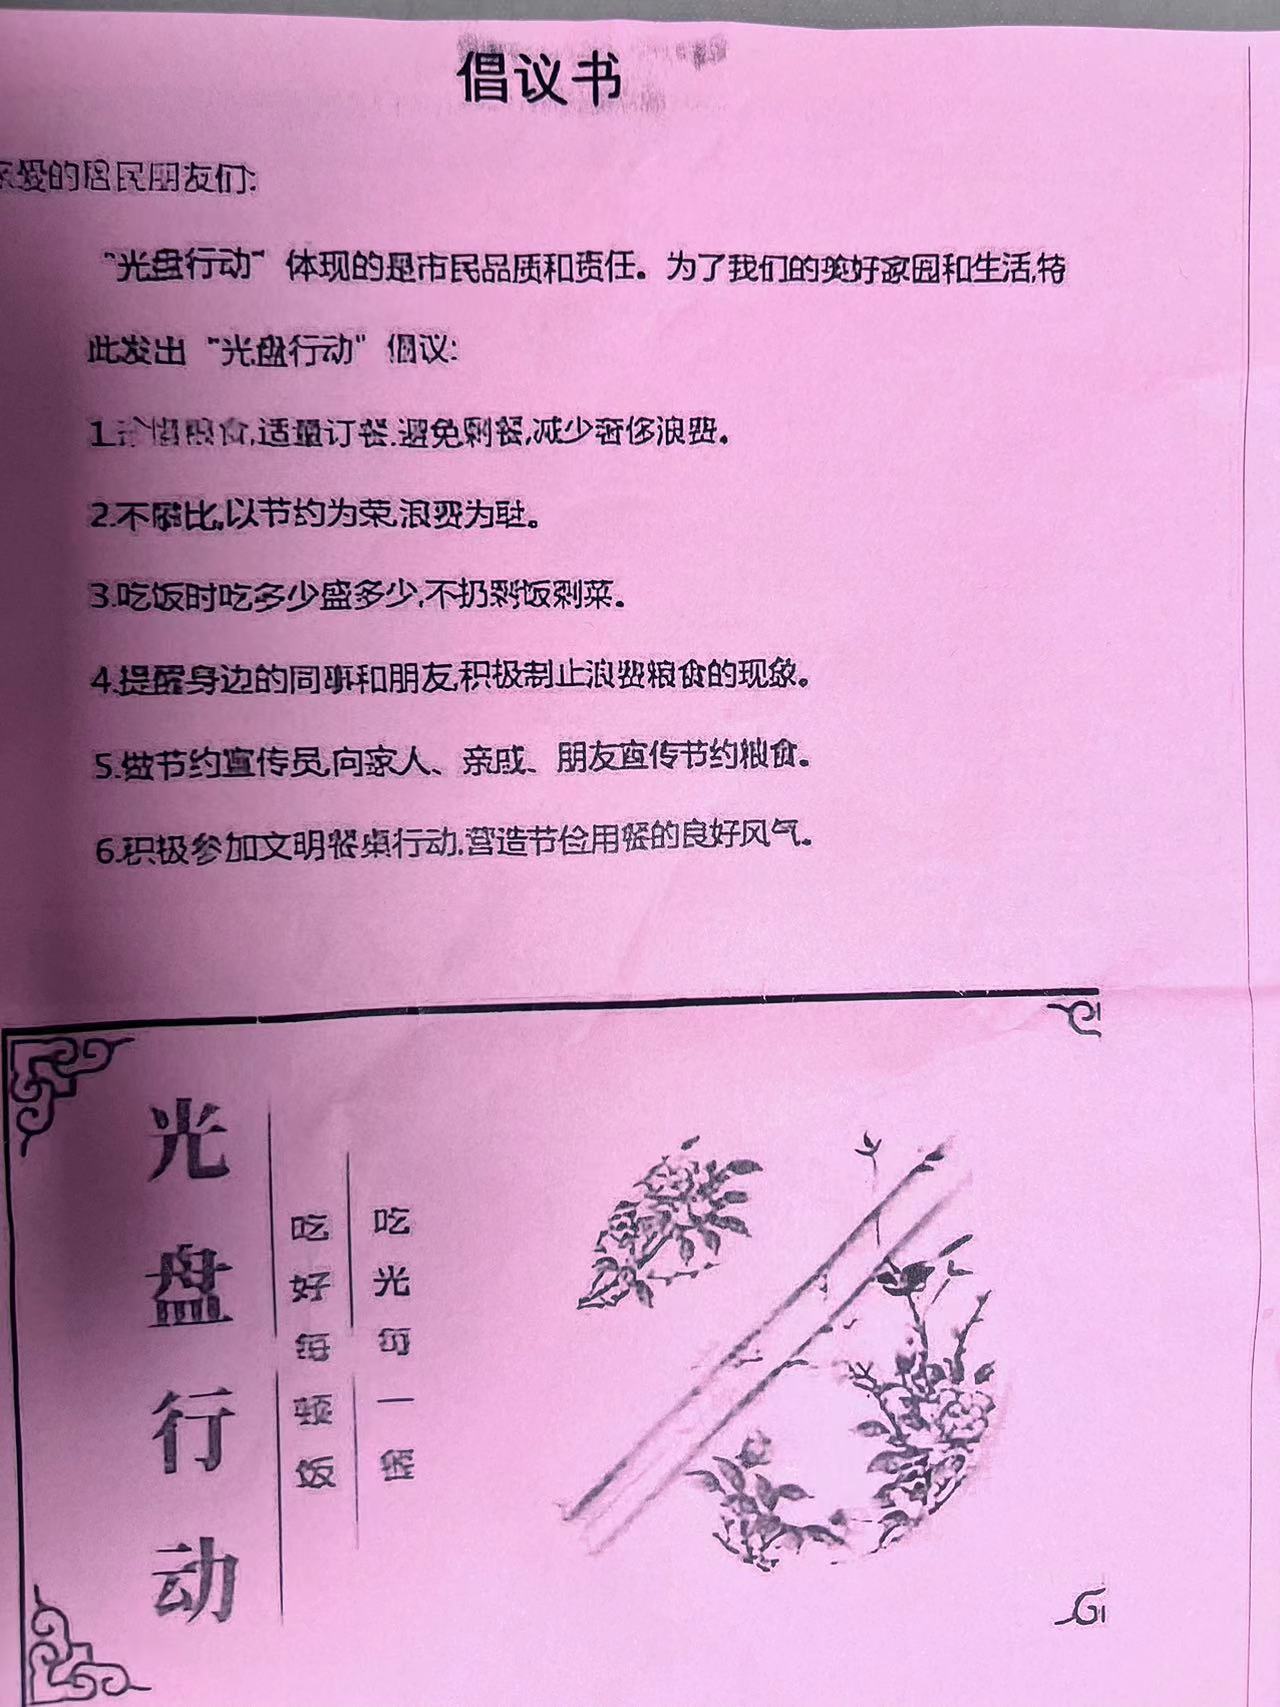 倡议书
亲爱的居民朋友们:
“光盘行动”体现的是市民品质和责任。为了我们的美好家园和生活,特
此发出“光盘行动”倡议:
1.珍惜粮食,适量订餐,避免剩餐,减少奢侈浪费。
2.不攀比,以节约为荣,浪费为耻。
3.吃饭时吃多少盛多少,不扔剩饭剩菜。
4.提醒身边的同事和朋友,积极制止浪费粮食的现象。
5.做节约宣传员,向家人、亲戚、朋友宣传节约粮食。
6.积极参加文明餐桌行动,营造节俭用餐的良好风气。
光盘行动
吃好每顿饭
吃光每一餐